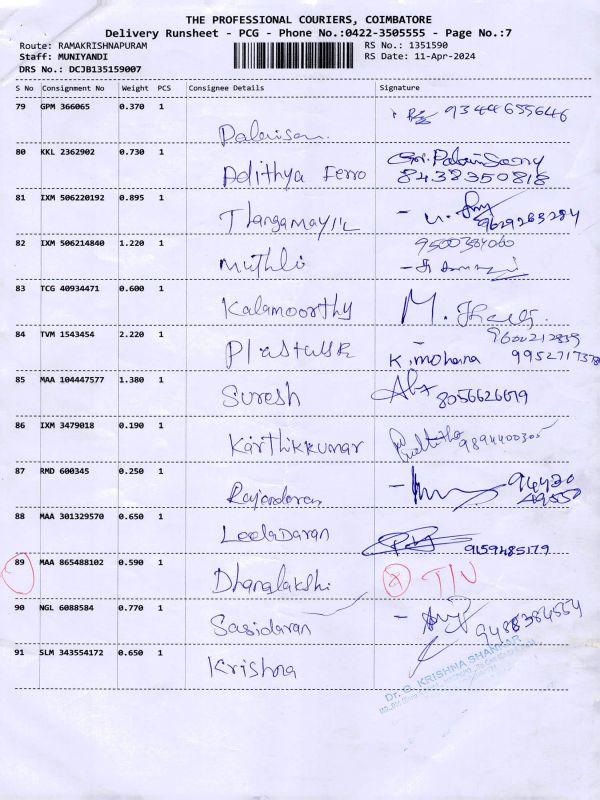 THE PROFESSIONAL COURIERS, COIMBATORE
Delivery Runsheet - PCG - Phone No.:0422-3505555 - Page No.:7
Route: RAMAKRISHNAPURAM RS No.: 1351590
Staff: MUNIYANDI RS Date: 11-Apr-2024
DRS No.: DCJB135159007
S No Consignment No Weight PCS Consignee Details Signature
79 GPM 366065 0.370 1
9344655646
80 KKL 2362902 0.730 1
Adithya Ferro 8438350818
81 IXM 506220192 0.895 1
Thangamayil 9629265284
82 IXM 506214840 1.220 1
9500384060
Muthli
83 TCG 40934471 0.600 1
Kalamoorthy M.
84 TVM 1543454 2.220 1
K. mohana
85 MAA 104447577 1.380 1
Suresh 8056626079
86 IXM 3479018 0.190 1
Karthikkumar 9894400305
87 RMD 600345 0.250 1
88 MAA 301329570 0.650 1
LeelaDaran 9159485179
89 MAA 865488102 0.590 1
Dhanalakshi
90 NGL 6088584 0.770 1
Sasidaran 9488384554
91 SLM 343554172 0.650 1
Krishna
Dr. G. KRISHNA SHANKAR